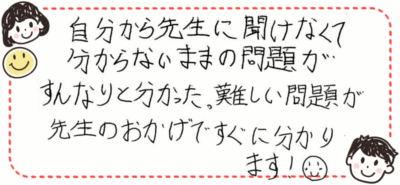 自分から先生に聞けなくて
分からないままの問題が
すんなりと分かった。難しい問題が
先生のおかげですぐに分かり
ます!